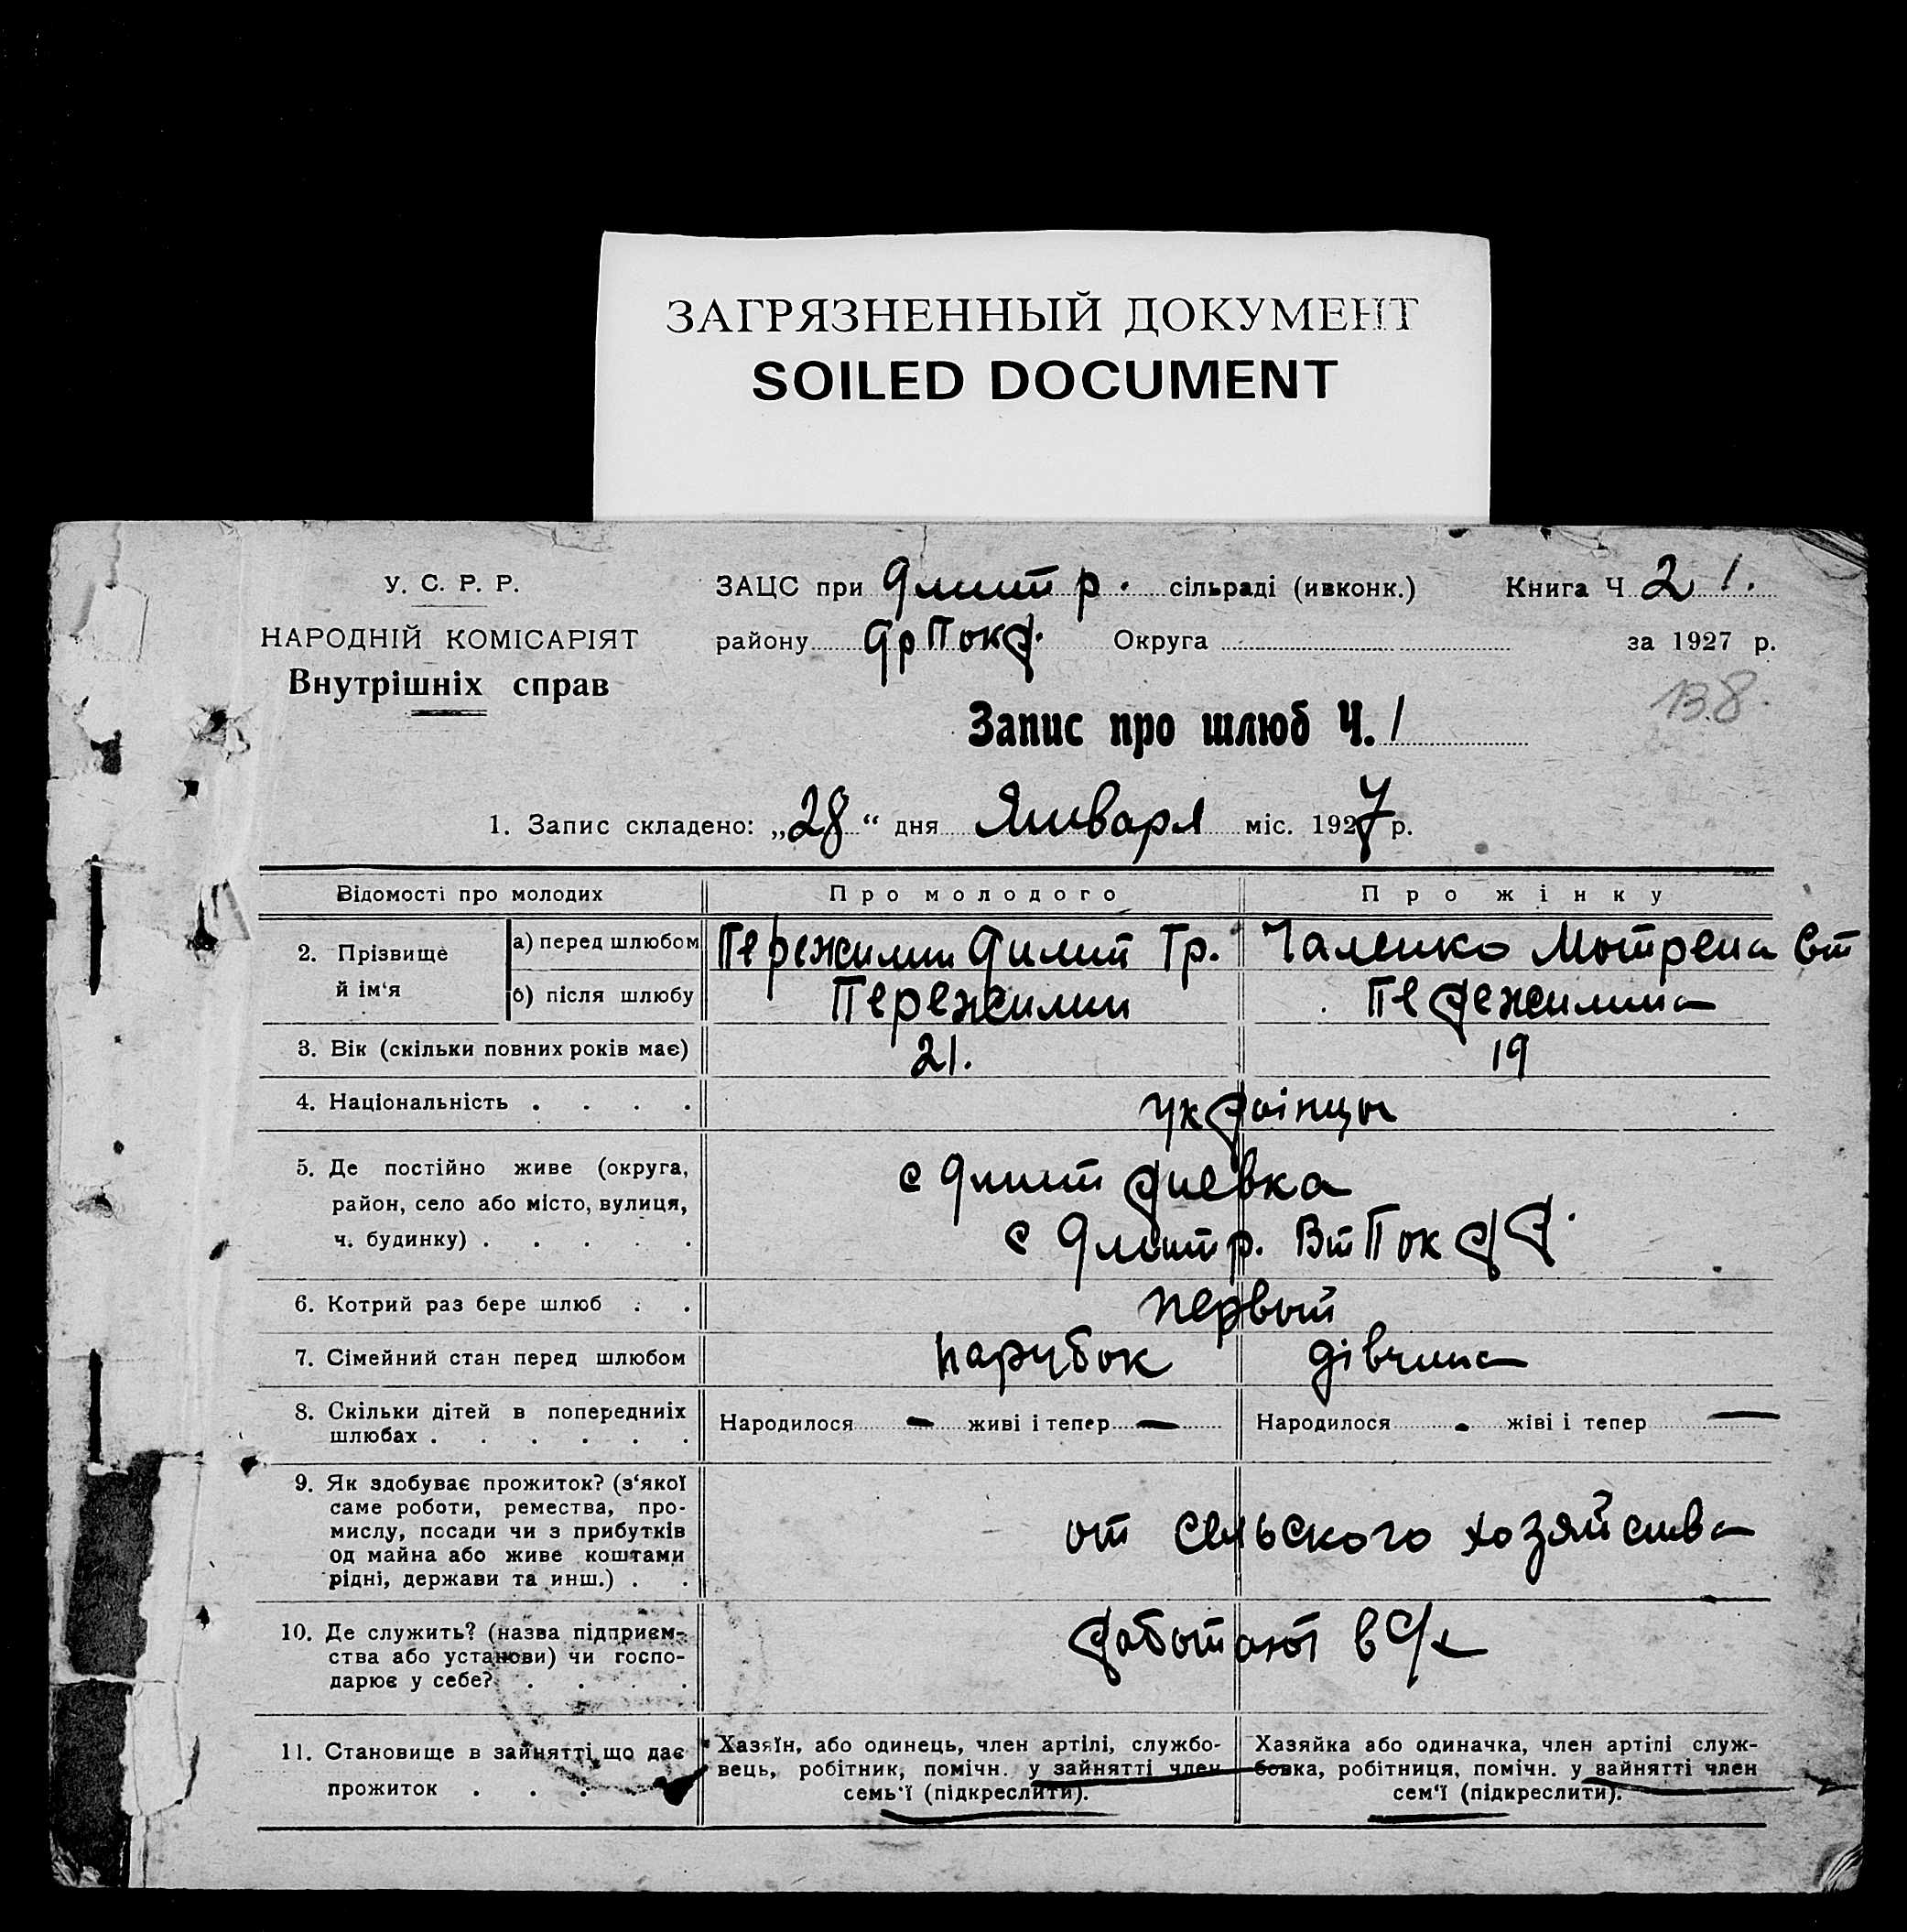 ЗАГРЯЗНЕННЫЙ ДОКУМЕНТ
SOILED DOCUMENT
У. С. Р. Р.
НАРОДНІЙ КОМІСАРІЯТ
Внутрішніх справ
ЗАЦС при Дмитр. сільраді (ивконк.) Книга Ч 2 1.
району Округа за 1927 р.
138.
Запис про шлюб Ч. 1
1. Запис складено: „28“ дня Января міс. 1927 р.
Відомості про молодих Про молодого Про жінку
2. Прізвище й ім‘я
а) перед шлюбом Пережилин Димит Гр. Чаленко Мотрена
б) після шлюбу Пережилин Пережилина
3. Вік (скільки повних років має) 21. 19
4. Національність . . . . українцы
5. Де постійно живе (округа, с Дмитриевка
район, село або місто, вулиця,
ч. будинку) . . . . . с Дмитр.
6. Котрий раз бере шлюб . . первый
7. Сімейний стан перед шлюбом парубок дівчина
8. Скільки дітей в попередниіх
шлюбах . . . . . . Народилося - живі і тепер - Народилося - жіві і тепер -
9. Як здобуває прожиток? (з‘якої
саме роботи, ремества, про-
мислу, посади чи з прибутків
од майна або живе коштами
рідні, держави та инш.) . .
от сельского хозяйства
10. Де служить? (назва підприєм-
ства або установи) чи госпо-
дарює у себе? . . . .
работают в с/х
11. Становище в зайнятті що дає
прожиток . . . .
Хазяїн, або одинець, член артілі, службо-
вець, робітник, помічн. у зайнятті член
семь‘ї (підкреслити).
Хазяйка або одиначка, член артілі служ-
бовка, робітниця, помічн. у зайнятті член
сем‘ї (підкреслити).